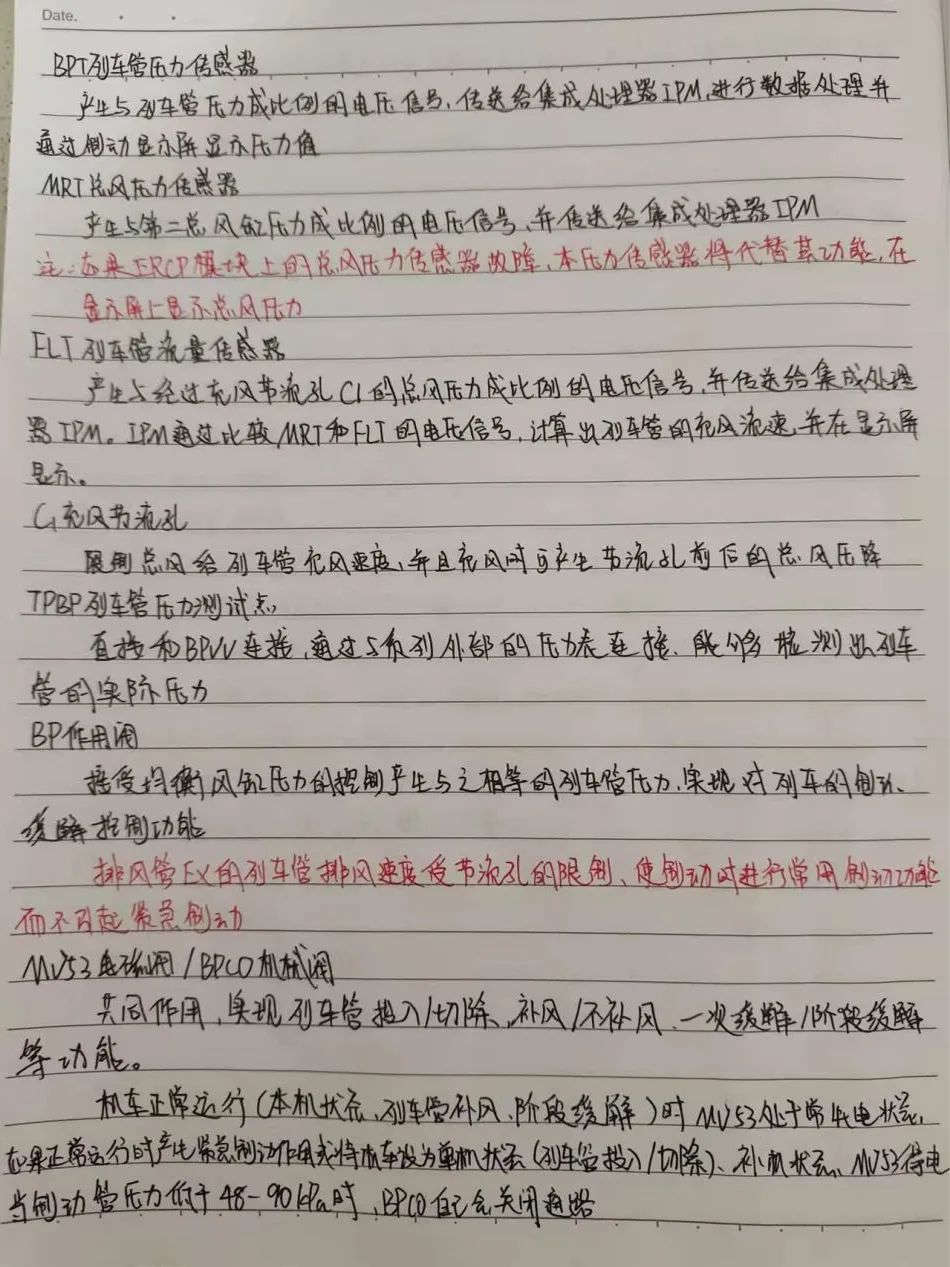 Date.
BPT列车管压力传感器
产生与列车管压力成比例的电压信号,传送给集成处理器IPM,进行数据处理并
通过制动显示屏显示压力值
MRT总风压力传感器
产生与第二总风缸压力成比例的电压信号,并传送给集成处理器IPM
注:如果ERCP模块上的总风压力传感器故障,本压力传感器将代替其功能,在
显示屏上显示总风压力
FLT列车管流量传感器
产生与经过充风节流孔C1的总风压力成比例的电压信号,并传送给集成处理
器IPM。IPM通过比较MRT和FLT的电压信号,计算出列车管的充风流速,并在显示屏
显示。
C1充风节流孔
限制总风给列车管充风速度,并且充风时可产生节流孔前后的总风压降
TPBP列车管压力测试点
直接和BPVV连接,通过与系列外部的压力表连接,能够检测出列车
管的实际压力
BP作用阀
接受均衡风缸压力的控制产生与之相等的列车管压力,实现对列车的制动、
缓解控制功能
排风管EX的列车管排风速度受节流孔的限制、使制动时进行常用制动功能
而不引起紧急制动
MV53电磁阀/BPCO机械阀
共同作用,实现列车管投入/切除、补风/不补风、一次缓解/阶段缓解
等功能。
机车正常运行(本机状态、列车管补风、阶段缓解)时MV53处于常失电状态,
如果正常运行时产生紧急制动作用或将机车设为单机状态(列车管投入/切除)、补机状态,MV53得电
当制动管压力低于48-90kPa时,BPCO自己会关闭通路